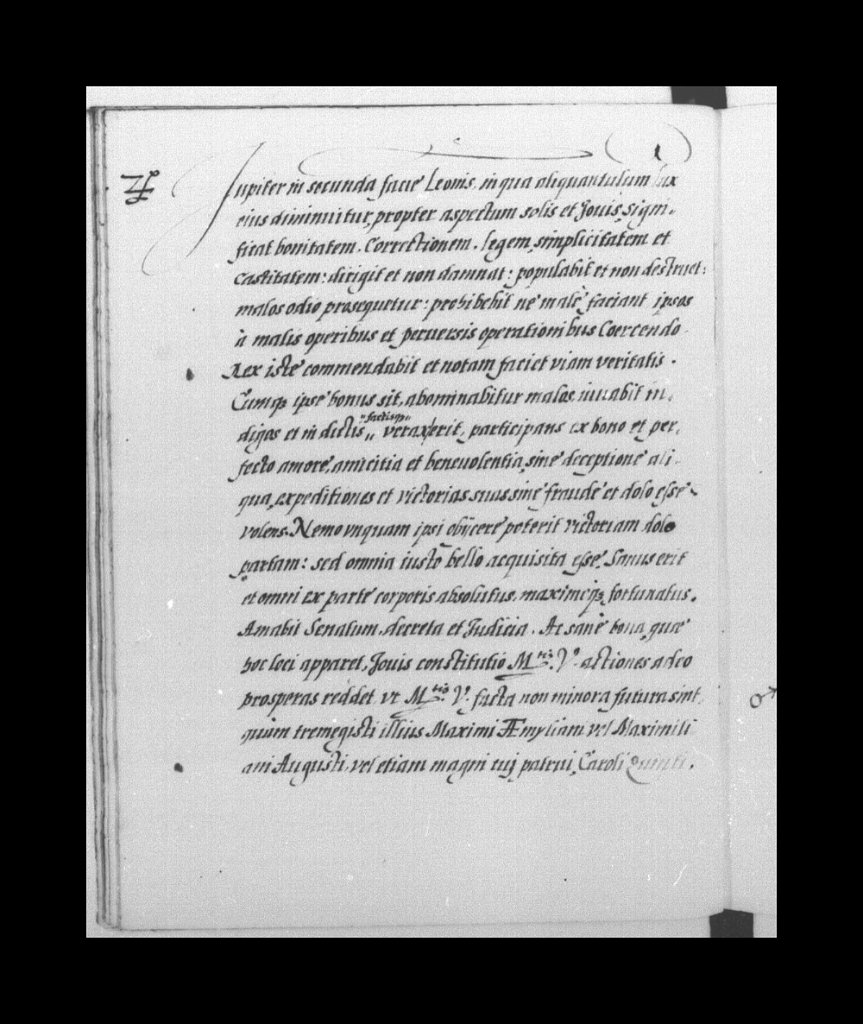 ♃ Iupiter in secunda facie Leonis, in qua aliquantulum lux
eius diminuitur, propter aspectum solis et Iouis, signi-
ficat bonitatem. Correctionem. legem, simplicitatem et
castitatem: dirigit et non damnat: populabit et non destruet:
malos odio prosequetur: prohibebit ne malè faciant ipsos
à malis operibus et peruersis operationibus Coercendo.
Rex iste commendabit et notam faciet viam veritatis.
Cumq; ipse bonus sit, abominabitur malos iuuabit in-
digos et in dictis, factisq; verax erit, participans ex bono et per-
fecto amore, amicitia et beneuolentia, sine deceptione ali-
qua, expeditiones et victorias suas sine fraude et dolo esse
volens. Nemo vnquam ipsi obijcere poterit victoriam dolo
partam: sed omnia iusto bello acquisita esse. Sanus erit
et omni ex parte corporis absolutus, maximeq; fortunatus.
Amabit Senatum, decreta et Iudicia. Ac sanè bona, quae
hoc loci apparet, Iouis constitutio M.tis V. actiones adeo
prosperas reddet, vt M.tis V. facta non minora futura sint,
quàm tremegisti illius Maximi Æmyliani vel Maximili
ani Augusti, vel etiam magni tuj patrui, Caroli Quinti.
♂